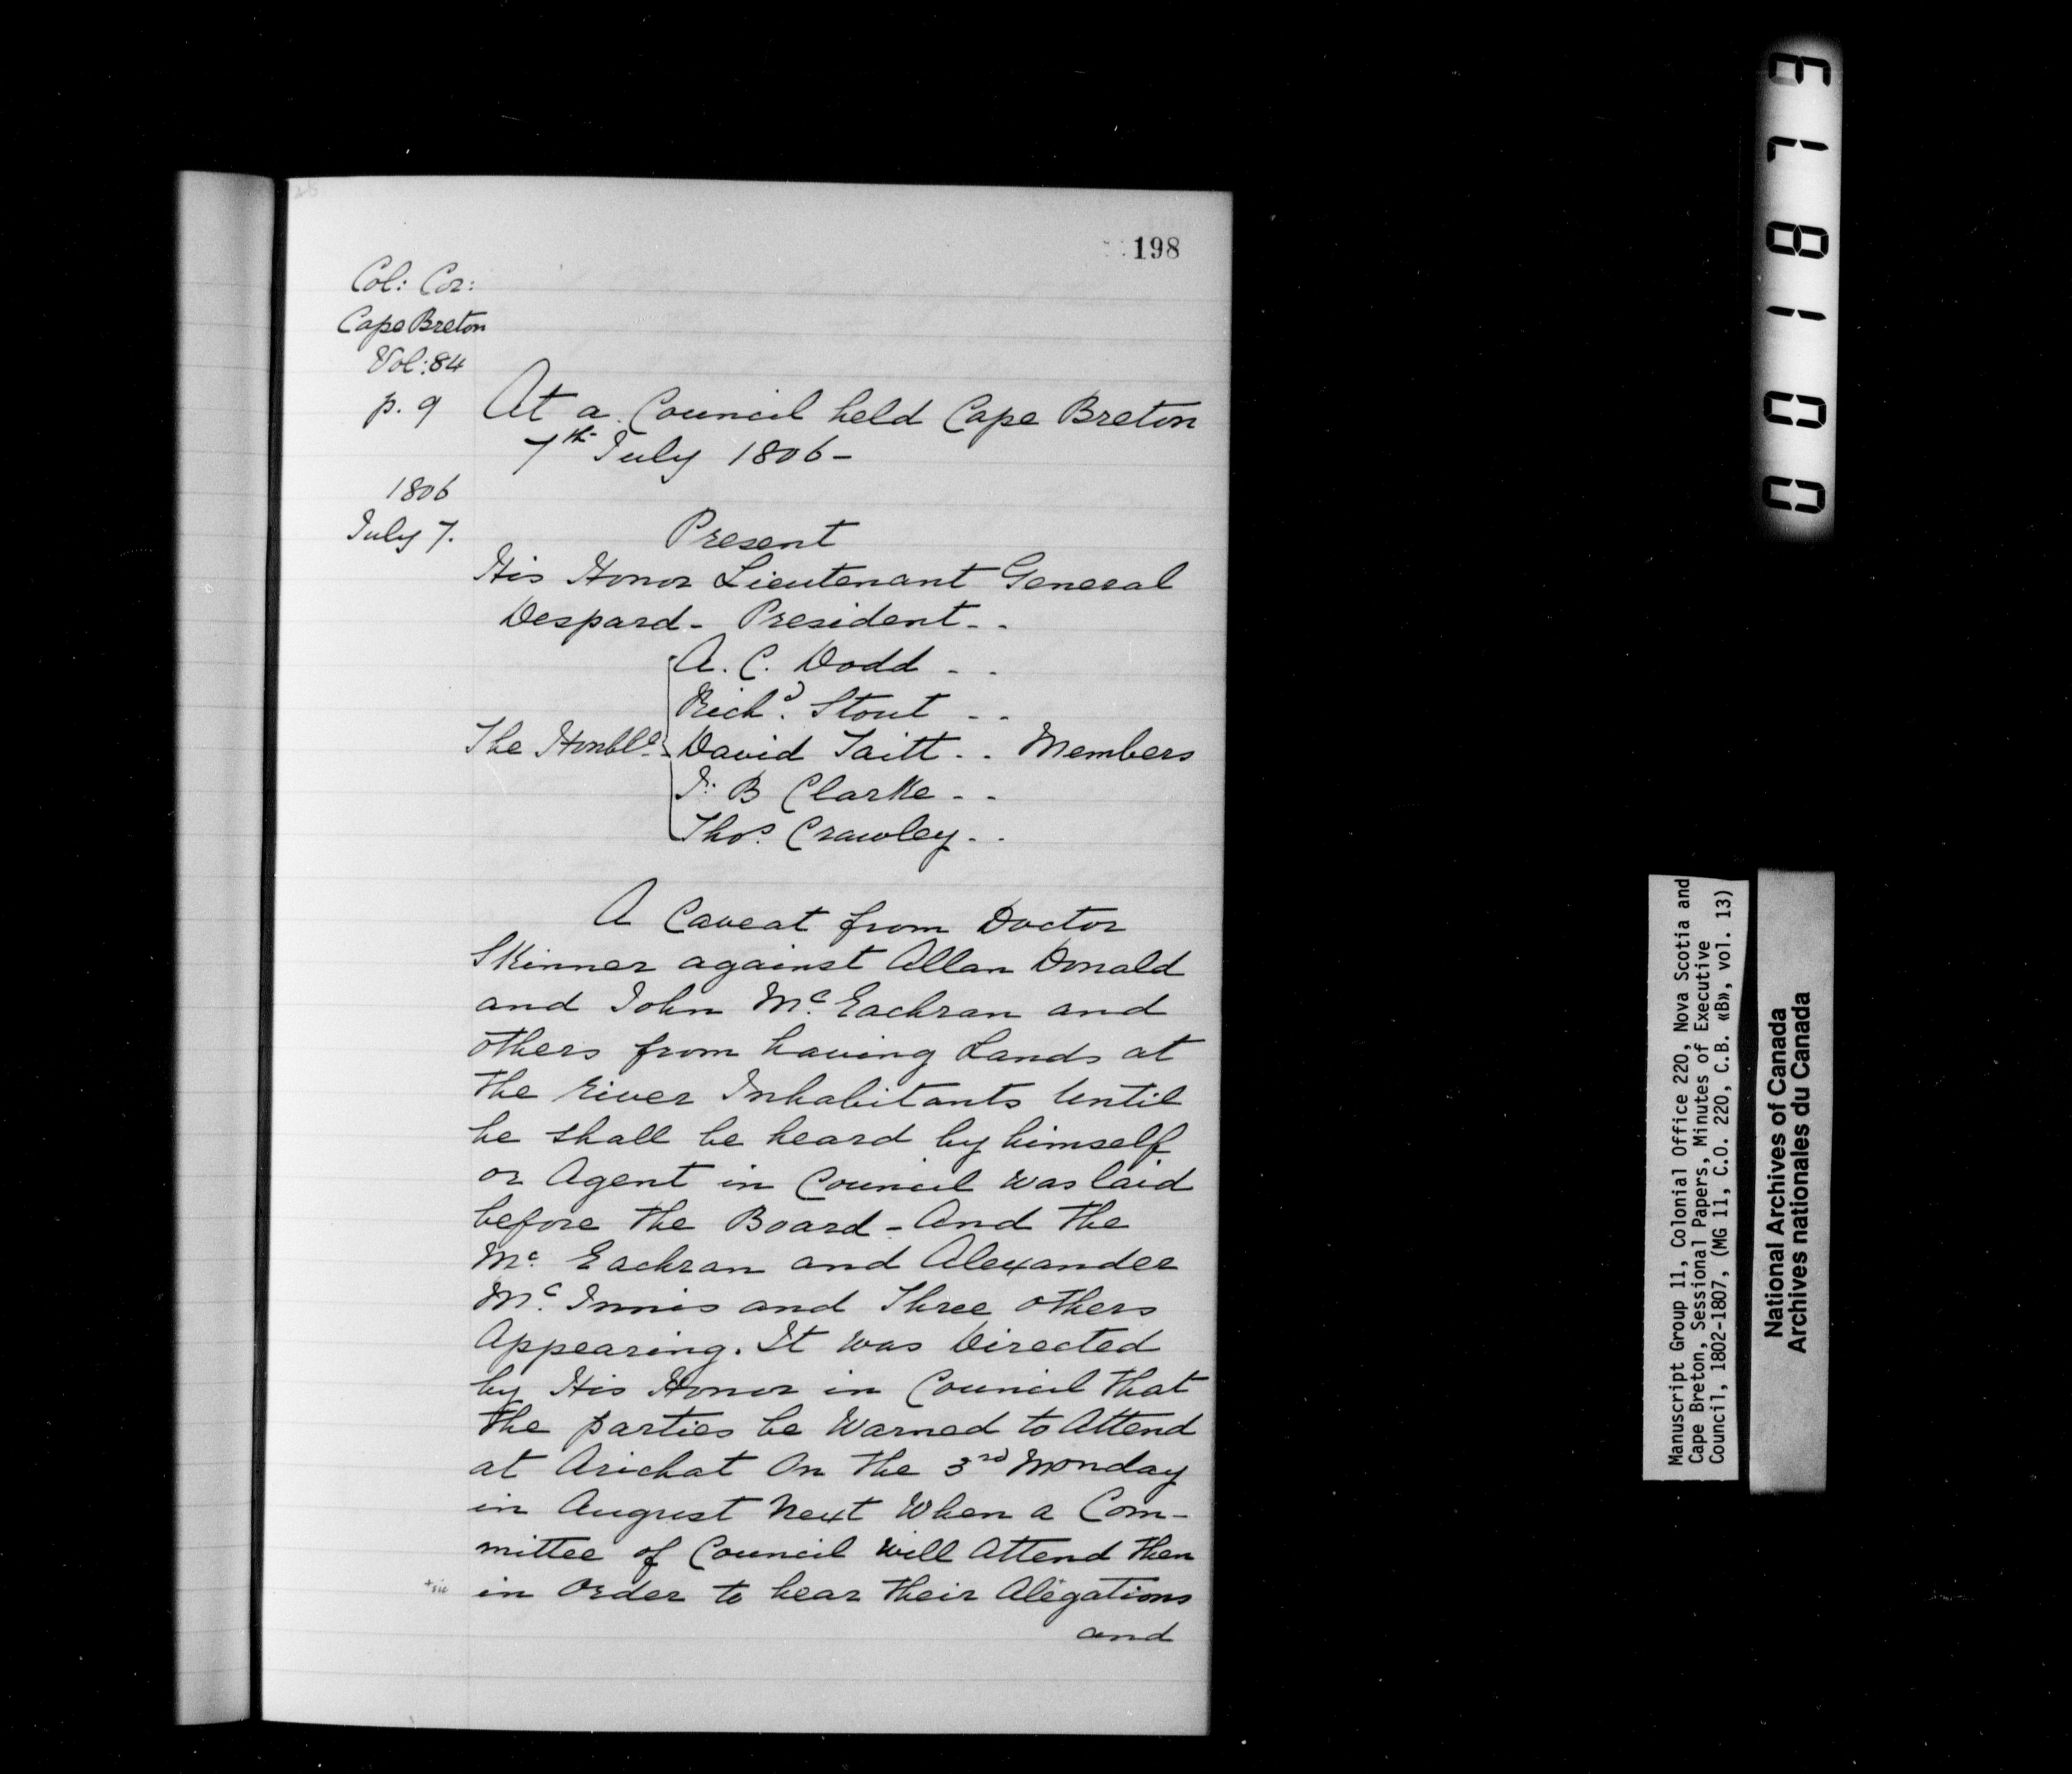 198
Col: Cor:
Cape Breton
Vol: 84
p. 9
At a Council held Cape Breton
7th July 1806 -
1806
July 7.
Present
His Honor Lieutenant General
Despard - President - -
A. C. Dodd - -
Richd. Stout - -
The Honble. David Taitt - - Members
I: B Clarke - -
Thos. Crawley - -
A Caveat from Doctor
Skinner against Allan Donald
and John Mc. Eachran and
others from having Lands at
the River Inhabitants Until
he shall be heard by himself
or Agent in Council was laid
before the Board - And the
Mc. Eachran and Alexander
Mc. Innis and Three others
Appearing. It was Directed
by His Honor in Council that
the parties be Warned to Attend
at Arichat On the 3rd Monday
in August Next When a Com-
mittee of Council Will Attend then
+sic in Order to hear their Alegations
and
001876
Manuscript Group 11, Colonial Office 220, Nova Scotia and
Cape Breton, Sessional Papers, Minutes of Executive
Council, 1802-1807, (MG 11, C.O. 220, C.B. «B», vol. 13)
National Archives of Canada
Archives nationales du Canada